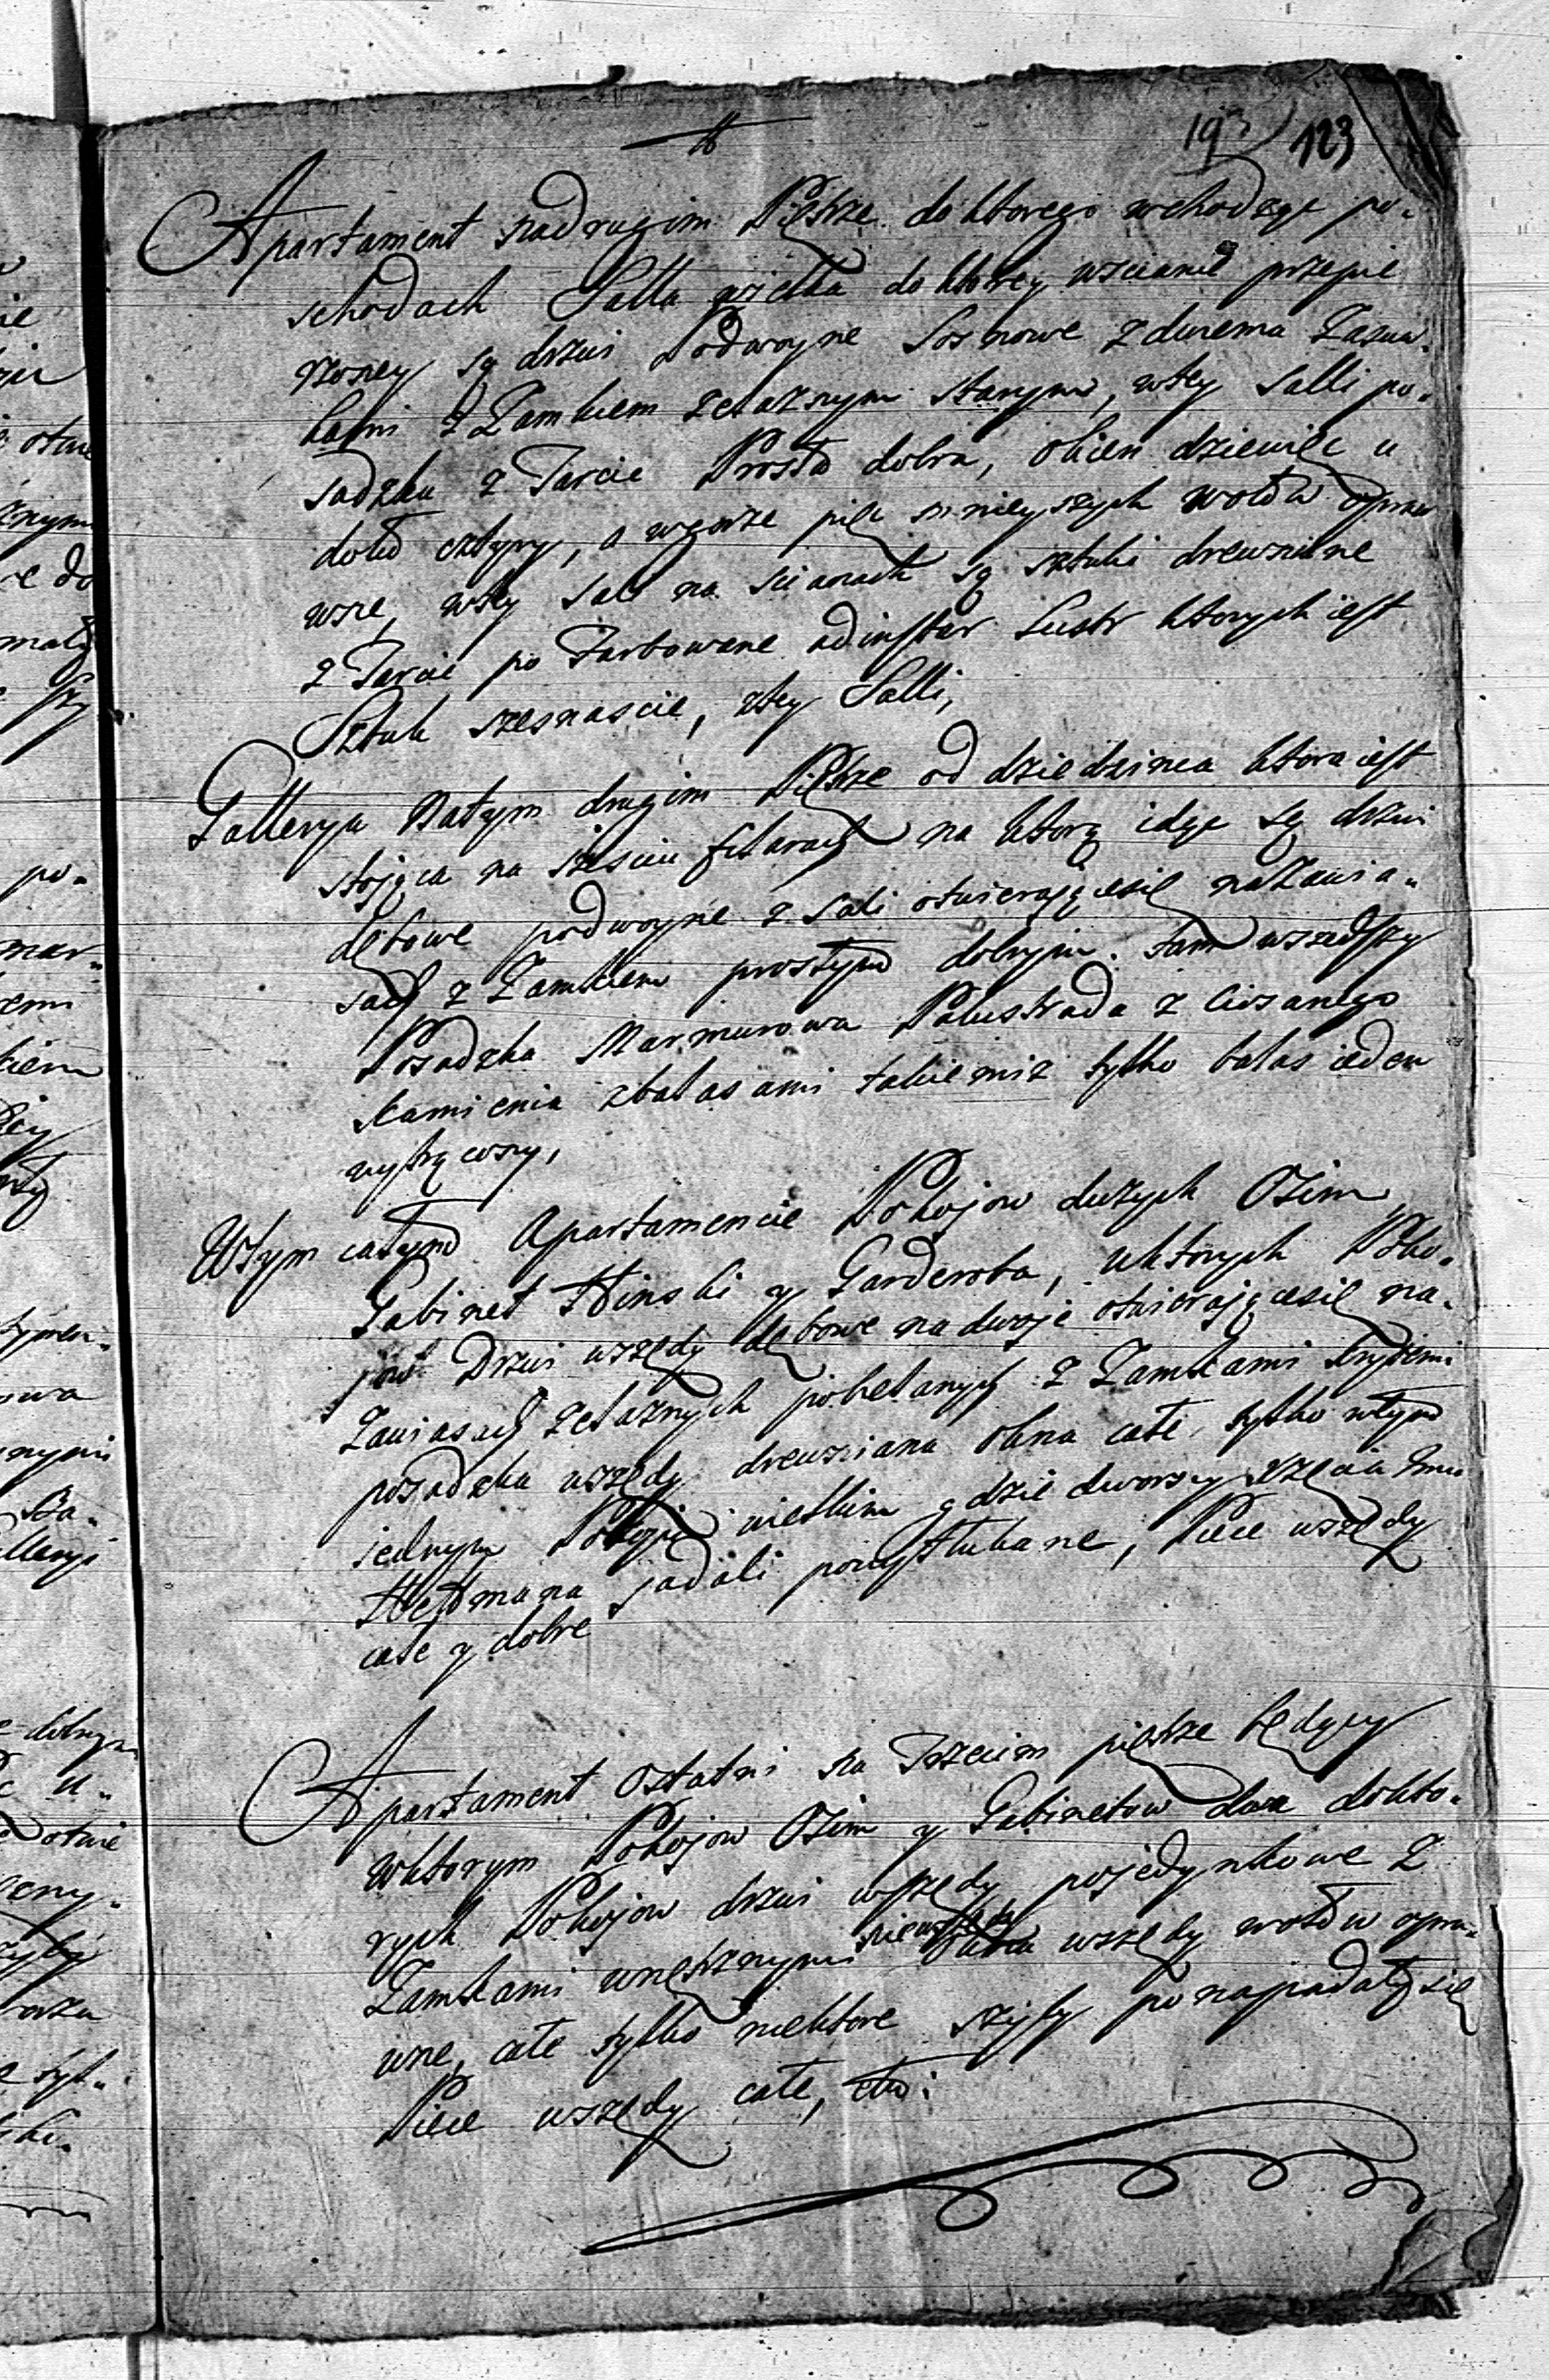 193 123
Apartament nadrugim Piętrze do ktorego wchodząc po„
schodach Salla wielka do ktorey wscianie przepie
rzoney są drzwi Podwoyne Sosnowe z dwiema Zasuw„
kami Z Zamkiem Zelaznym starym, wtey Salli po„
sadzka z Tarcic Prosta dobra, Okien dziewięc u
dołu cztyry, a wgorze pięc mnieyszych wołow opra
wne, wtey Sali na scianach są sztuki drewniane
z Tarcic po Farbowane adinstar Lustr ktorych iest
Sztuk szesnascie, wtey Salli,
Gallerya Natym drugim Piętrze od dziedzinca ktora iest
stojąca na szesciu filarach na ktorą idąc są drzwi
dębowe podwoyne z Sali otwierającesię naZawia„
sach z Zamkiem prostym dobrym. tam wszedszy
Posadzka Marmurowa Balustrada z Ciosanego
Kamienia zbalasami takiemiz tylko balas ieden
wytrącony,
Wtym całym Apartamencie Pokojow duzych Osim
Gabinet Hinski y Garderoba, uktorych Poko„
jow Drzwi wszędy dębowe nadwoje otwierającesię na„
Zawiasach Zelaznych pobelanych z Zamkami krytemi
posadzka wszędy drewniana okna całe, tylko wtym
jednym Pokoju wielkim gdzie dworscy Xzęcia Jmci
Hetmana jadali powytłukane, Piece wszędy
całe y dobre
Apartament Ostatni na Trzecim piętrze będący
Wktorym Pokojow Osim y Gabinetow dwa dokto„
rych Pokojow drzwi wszędy pojedynkowe Z
Zamkami wnętrznymi wszędy wołow opra„
wne, całe tylko niektore szyby ponapadały się
Piece wszędy całe, etc: